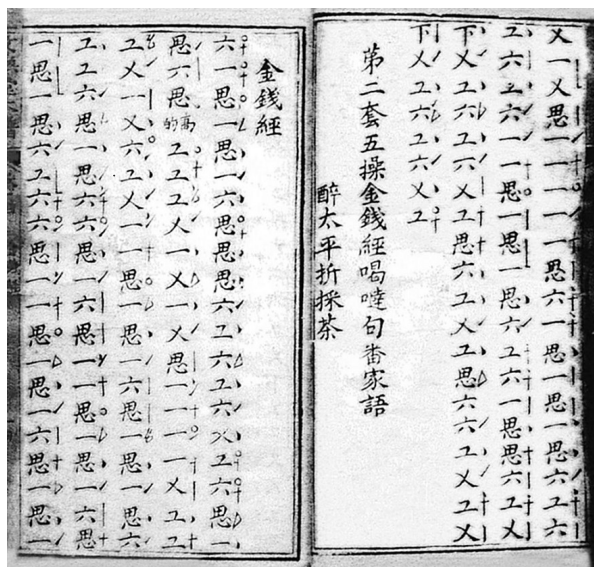 乂一乂思一一一一一思六一思一思一思六工六
工六工六一一思一思一思六工六一思思六工乂
下乂工六工六乂工思六工乂工思六六工乂工乂
下乂工六工六乂工
第二套五操金錢經喝噠句畨家語
醉太平折採茶
金錢經
六一思一思一六思思思六工六工六乂工六思一
思六思高的工工乂一乂一乂思一一一一乂工工
工乂一乂六工乂一一思一思一六思一思一思六
工工六思一思六思一一六一思一思一思一六思
一思一思六工六六思一一思一思一六思一思一